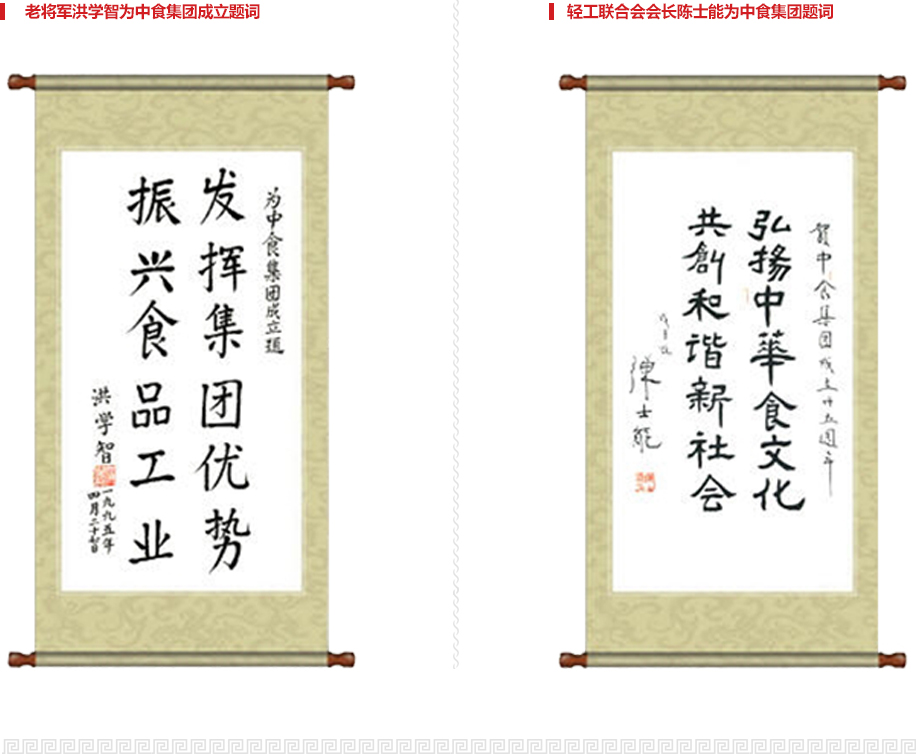 老将军洪学智为中食集团成立题词
为中食集团成立题
发挥集团优势
振兴食品工业
洪学智
一九九五年
四月二十七日
轻工联合会会长陈士能为中食集团题词
贺中食集团成立廿五週年
弘揚中華食文化
共創和谐新社会
陳士能